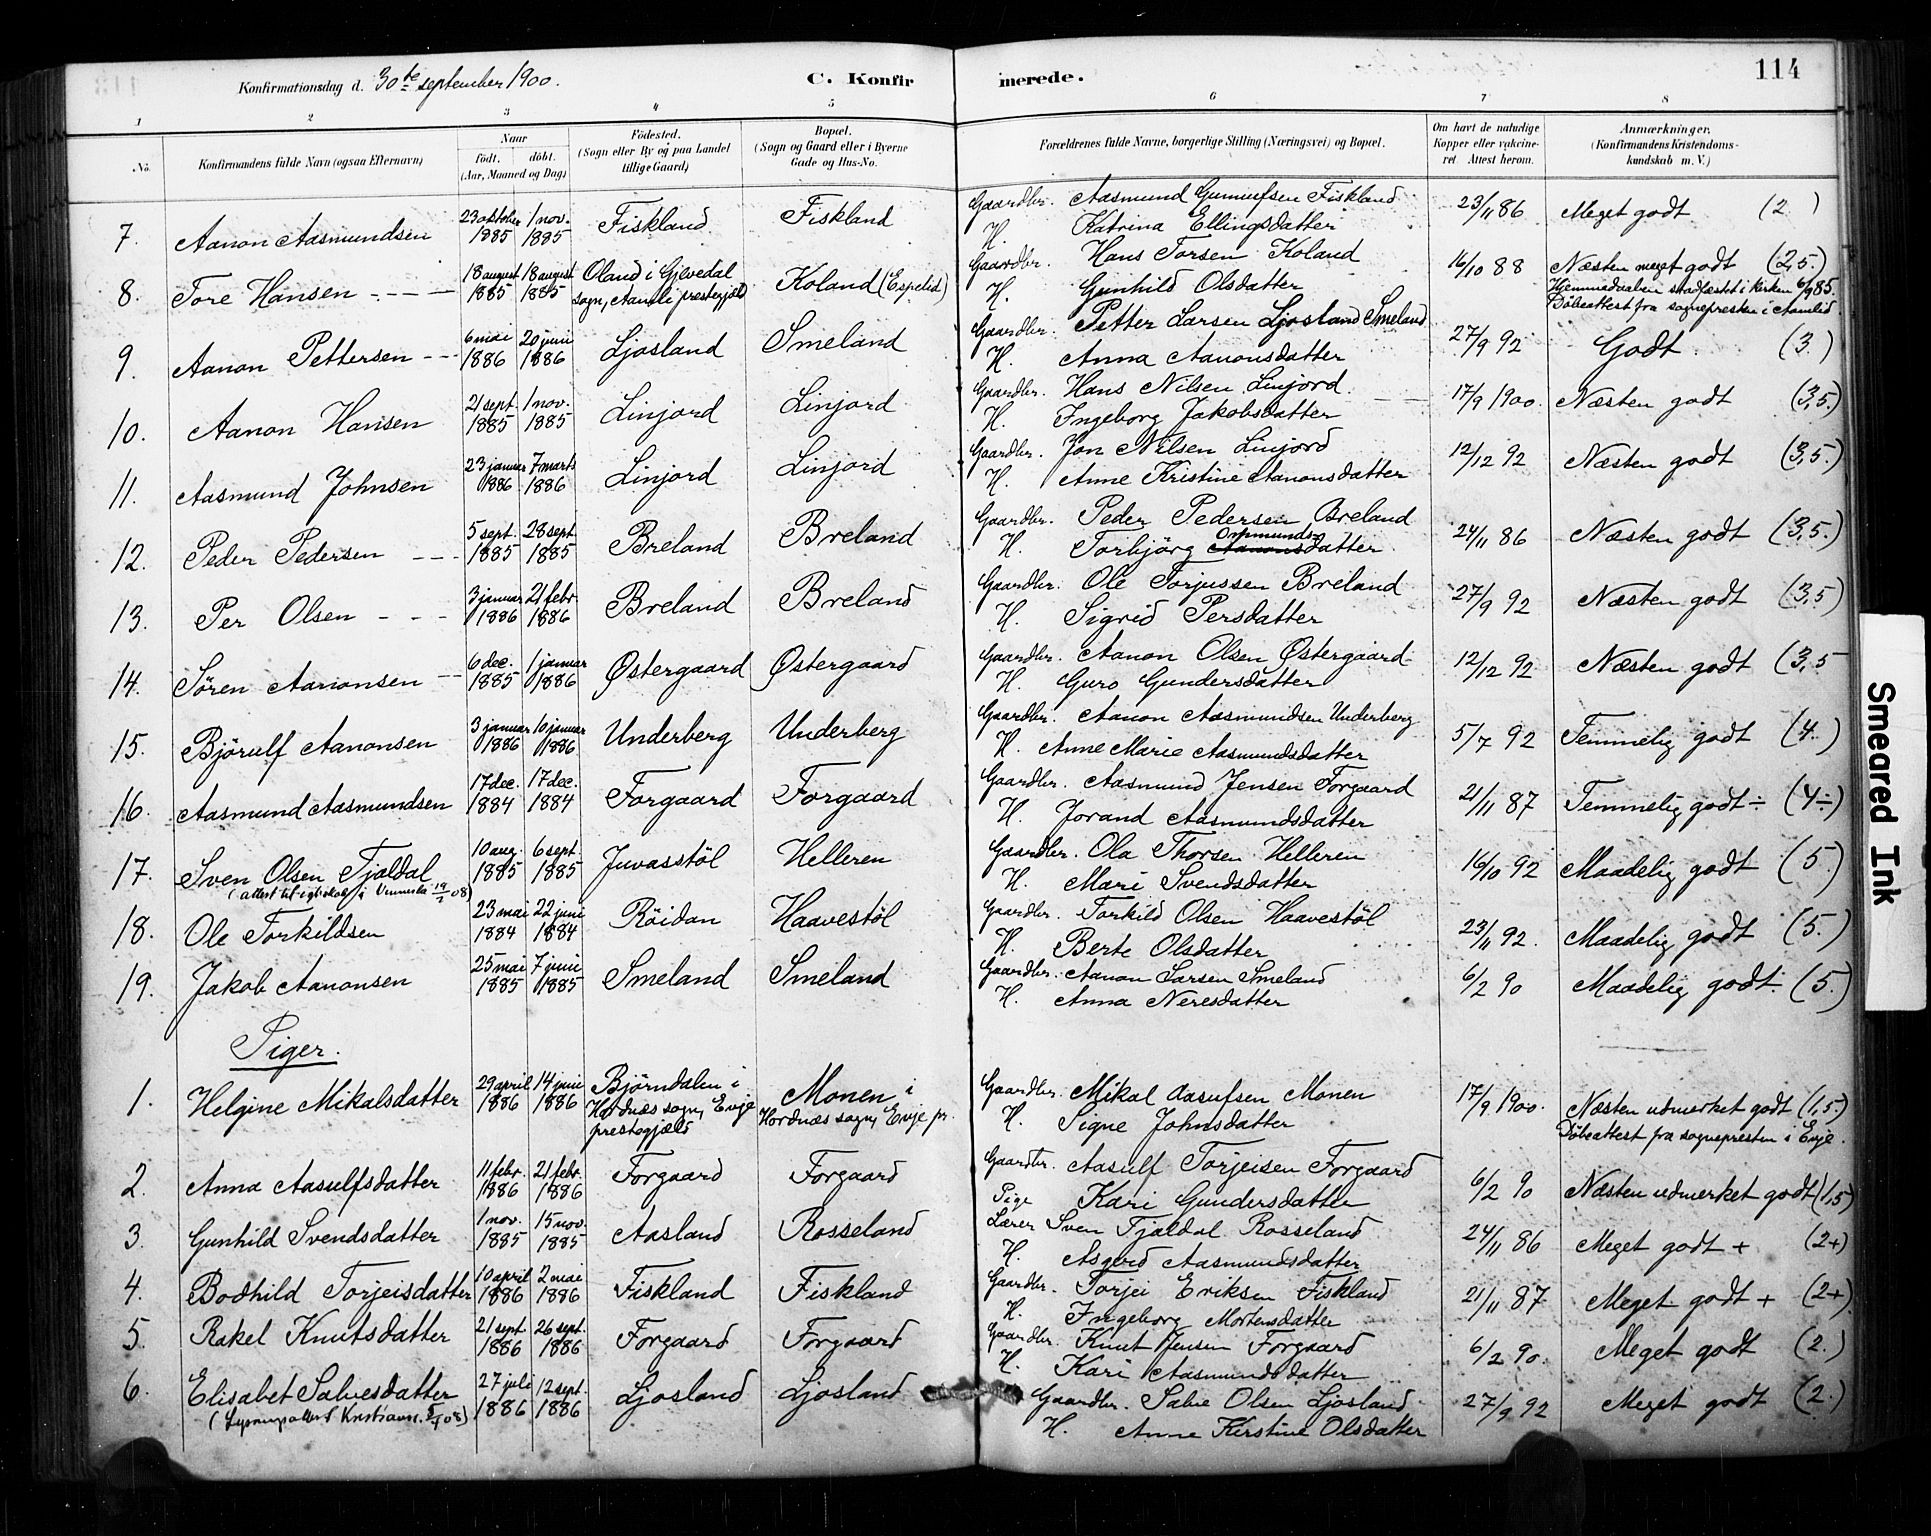 Konfirmationsdag d. 30te september 1900.
C. Konfirmerede.
114
1 2 3 4 5 6 7 8
No.
Konfirmandens fulde Navn (ogsaa Efternavn)
Naar
født. døbt.
(Aar, Maaned og Dag)
Fødested.
(Sogn eller By og paa Landet
tillige Gaard)
Bopæl.
(Sogn og Gaard eller i Byerne
Gade og Hus-No.
Forældrenes fulde Navne, borgerlige Stilling (Næringsvei) og Bopæl.
Om havt de naturlige
Kopper eller vakcine-
ret Attest herom.
Anmærkninger.
(Konfirmandens Kristendoms-
kundskab m. V.)
7. Aanon Aasmundsen 23 oktober 1885 1 nov. 1885 Fiskland Fiskland Gaardbr. Aasmund Gunnufsen Fiskland 23/11 86 Meget godt (2)
H. Katrina Ellingsdatter
8. Tore Hansen 18 august 1885 18 august 1885 Oland i Gjevedal sogn, Aamli prestegjeld Koland (Espelid) Gaardbr. Hans Torsen Koland 16/10 88 Næsten meget godt (2,5.)
H. Gunhild Olsdatter Hjemmedaaben stadfæstet i kirken 6/9 85.
Døbeattest fra sognepresten i Aamlid.
9. Aanon Pettersen 6 mai 1886 20 juni 1886 Ljosland Smeland Gaardbr. Petter Larsen Ljosland Smeland 27/9 92 Godt. (3.)
H. Anna Aanonsdatter
10. Aanon Hansen 21 sept. 1885 1 nov. 1885 Linjord Linjord Gaardbr. Hans Nilsen Linjord 17/9 1900. Næsten godt (3,5.)
H. Ingeborg Jakobsdatter
11. Aasmund Johnsen 23 januar 1886 7 marts 1886 Linjord Linjord Gaardbr. Jon Nilsen Linjord 12/12 92 Næsten godt (3,5.)
H. Anne Kristine Aanonsdatter
12. Peder Pedersen 5 sept. 1885 28 sept. 1885 Breland Breland Gaardbr. Peder Pedersen Breland 24/11 86 Næsten godt (3,5.)
H. Torbjørg Aanonsdatter
13. Per Olsen 3 januar 1886 21 febr. 1886 Breland Breland Gaardbr. Ole Torjussen Breland 27/9 92 Næsten godt (3,5)
H. Sigrid Persdatter
14. Søren Aanonsen 6 dec. 1885 1 januar 1886 Østergaard Østergaard Gaardbr. Aanon Olsen Østergaard 12/12 92 Næsten godt (3,5
H. Guro Gundersdatter
15. Bjørulf Aanonsen 3 januar 1886 10 januar 1886 Underberg Underberg Gaardbr. Aanon Aasmundsen Underberg 5/7 92 Temmelig godt (4.)
H. Anne Marie Aasmundsdatter
16. Aasmund Aasmundsen 17 dec. 1884 17 dec. 1884 Forgaard Forgaard Gaardbr. Aasmund Jensen Forgaard 21/11 87 Temmelig godt ÷ (4÷)
H. Jorand Aasmundsdatter
17. Sven Olsen Tjaldal 10 aug. 1885 6 sept. 1885 Juvasstöl Helleren Gaardbr. Ola Thorsen Helleren 16/10 92 Maadelig godt (5.)
H. Mari Svendsdatter
18. Ole Torkildsen 23 mai 1884 22 juni 1884 Röidan Haavestöl Gaardbr. Torkild Olsen Haavestöl 23/11 92. Maadelig godt (5.)
H. Berte Olsdatter
19. Jakob Aanonsen 25 mai 1885 7 juni 1885 Smeland Smeland Gaardbr. Aanon Larsen Smeland 6/2 90 Maadelig godt. (5.)
H. Anna Neresdatter
Piger.
1. Helgine Mikalsdatter 29 april 1886 14 juni 1886 Bjørndalen i Hordnæs sogn, Evje prestegjæld Monen i Hordnæs sogn, Evje pr. Gaardbr. Mikal Aasulfsen Monen 17/9 1900. Næsten udmerket godt (1,5.)
H. Signe Johnsdatter Døbeattest fra sognepresten i Evje.
2. Anna Aasulfsdatter 11 febr. 1886 21 febr. 1886 Forgaard Forgaard Gaardbr. Aasulf Torjeisen Forgaard 6/2 90 Næsten udmerket godt (1,5)
Pige Kari Gundersdatter
3. Gunhild Svendsdatter 1 nov. 1885 15 nov. 1885 Aasland Rosseland Lærer Sven Tjaldal Rosseland 24/11 86 Meget godt + (2+)
H. Asgerd Aasmundsdatter
4. Bodhild Torjeisdatter 10 april 1886 2 mai 1886 Fiskland Fiskland Gaardbr. Torjei Eriksen Fiskland 21/11 87 Meget godt + (2+)
H. Ingeborg Mortensdatter
5. Rakel Knutsdatter 21 sept. 1886 26 sept. 1886 Forgaard Forgaard Gaardbr. Knut Jensen Forgaard 6/2 90. Meget godt (2.)
H. Kari Aasmundsdatter
6. Elisabet Salvesdatter 27 juli 1886 12 sept. 1886 Ljosland Ljosland Gaardbr. Salve Olsen Ljosland 27/9 92 Meget godt (2.)
H. Anne Kirstine Olsdatter
Smeared Ink